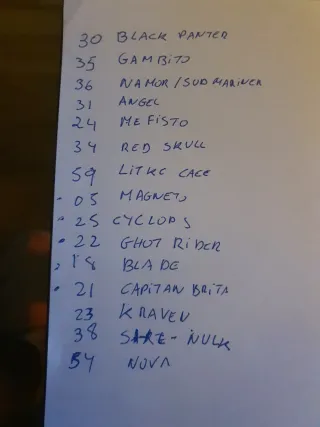 30 BLACK PANTER
35 GAMBITO
36 NAMOR/SUDMARINER
31 ANGEL
24 MEFISTO
34 RED SKULL
59 LITKE CAGE
05 MAGNETO
25 CYCLOPS
22 GHOT RIDER
18 BLADE
21 CAPITAN BRITA
23 KRAVEN
38 HULK
54 NOVA